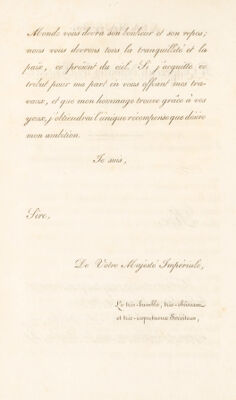 Monde vous devra son bonheur et son repos;
nous vous devrons tous la tranquillité et la
paix, ce présent du ciel. Si j'acquitte ce
tribut pour ma part en vous offrant mes tra-
vaux, et que mon hommage trouve grâce à vos
yeux, j'obtiendrai l'unique recompense que désire
mon ambition.
Je suis,
Sire,
De Votre Majesté Impériale,
Le très-humble, très-obéissant
et très-respectueux Serviteur,